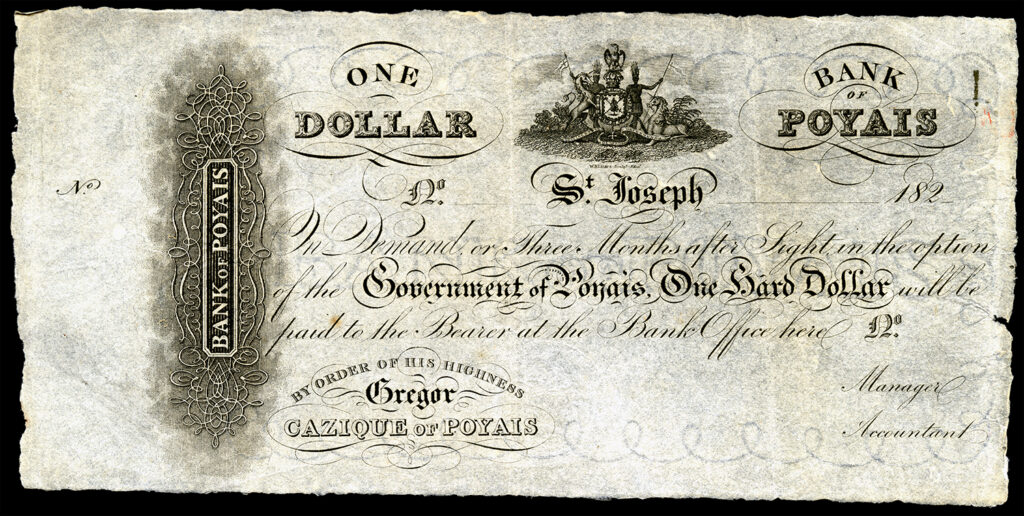 ONE
DOLLAR
BANK
OF
POYAIS
No
No. St. Joseph 182
On Demand, or Three Months after Sight, in the option
of the Government of Poyais, One Hard Dollar will be
paid to the Bearer at the Bank Office here No.
BANK OF POYAIS
BY ORDER OF HIS HIGHNESS
Gregor
CAZIQUE OF POYAIS
Manager
Accountant